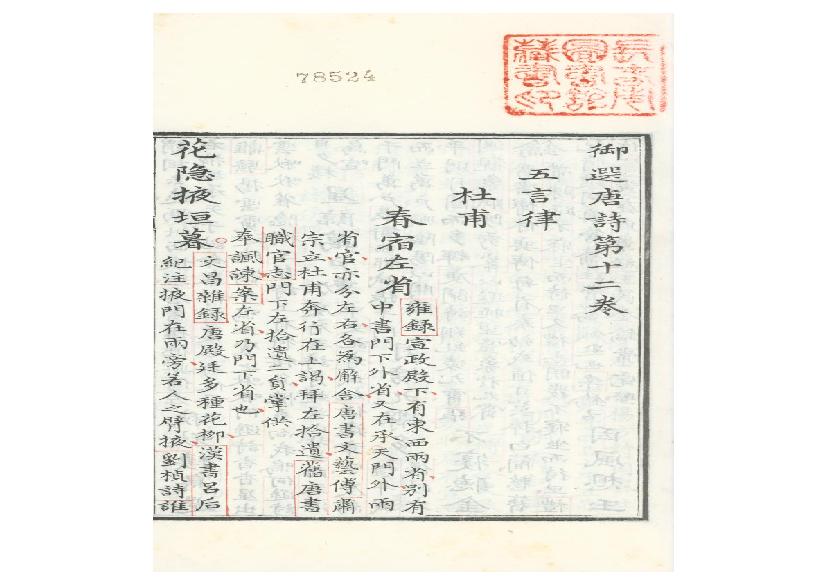 78524
御選唐詩第十二卷
五言律
杜甫
春宿左省
雍錄宣政殿下有東西兩省别有
中書門下外省又在承天門外兩
省官亦分左右各為廨舍唐書文藝傳肅
宗立杜甫奔行在上謁拜左拾遺舊唐書
職官志門下左拾遺二員掌供
奉諷諫案左省乃門下省也
花隐掖垣暮
文昌雜録唐殿廷多種花栁漢書呂后
紀注掖門在兩旁若人之臂掖劉楨詩誰